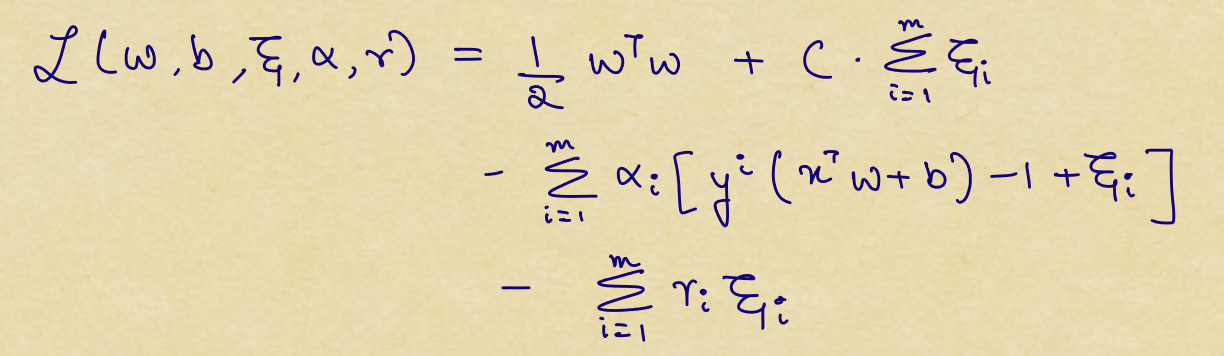 ℒ(w, b, ξ, α, r) = 1/2 wᵀw + C · ∑_{i=1}^{m} ξᵢ
- ∑_{i=1}^{m} αᵢ [yⁱ(xᵀw + b) - 1 + ξᵢ]
- ∑_{i=1}^{m} rᵢ ξᵢ